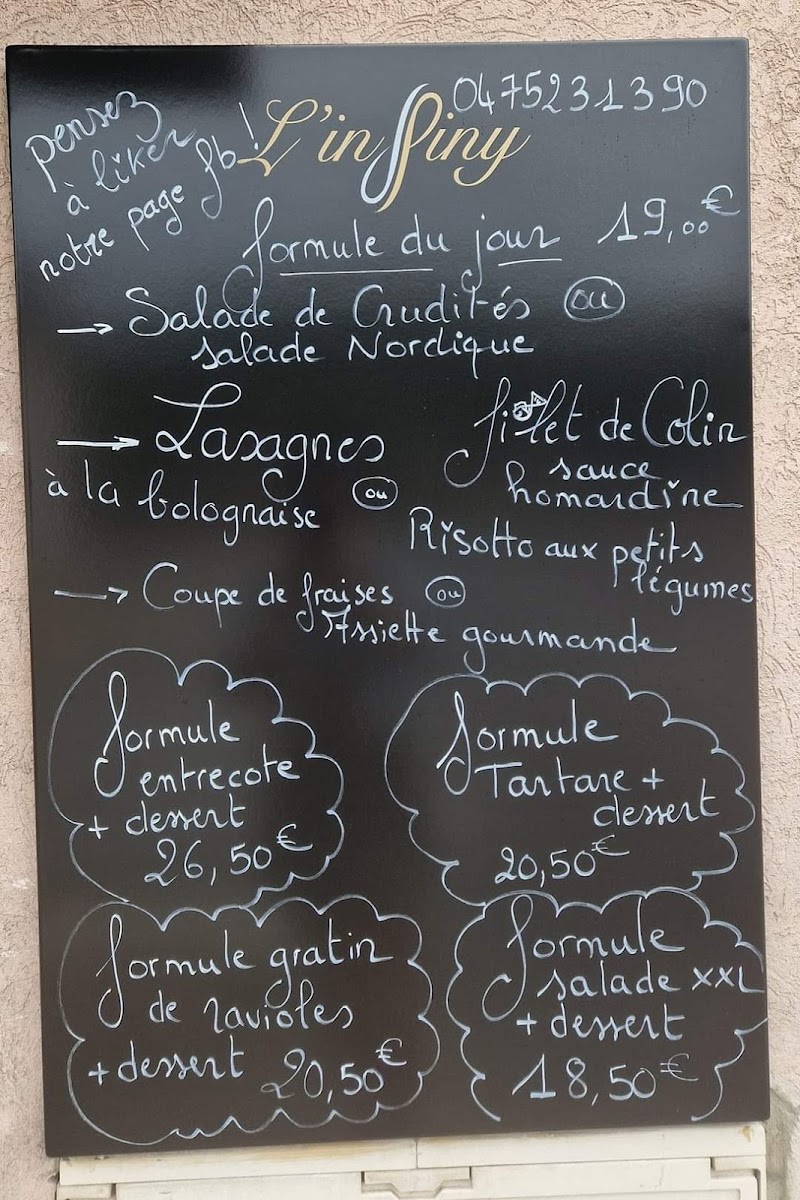 0475231390
pensez
à liker
notre page fb!
L'inspiny
formule du jour 19,00€
→ Salade de Crudités ou
salade Nordique
→ Lasagnes
à la bolognaise
ou
filet de Colin
sauce
homardine
Risotto aux petits
légumes
→ Coupe de fraises ou
Assiette gourmande
formule
entrecote
+ dessert
26,50€
formule
Tartare +
dessert
20,50€
formule gratin
de ravioles
+ dessert 20,50€
formule
salade XXL
+ dessert
18,50€